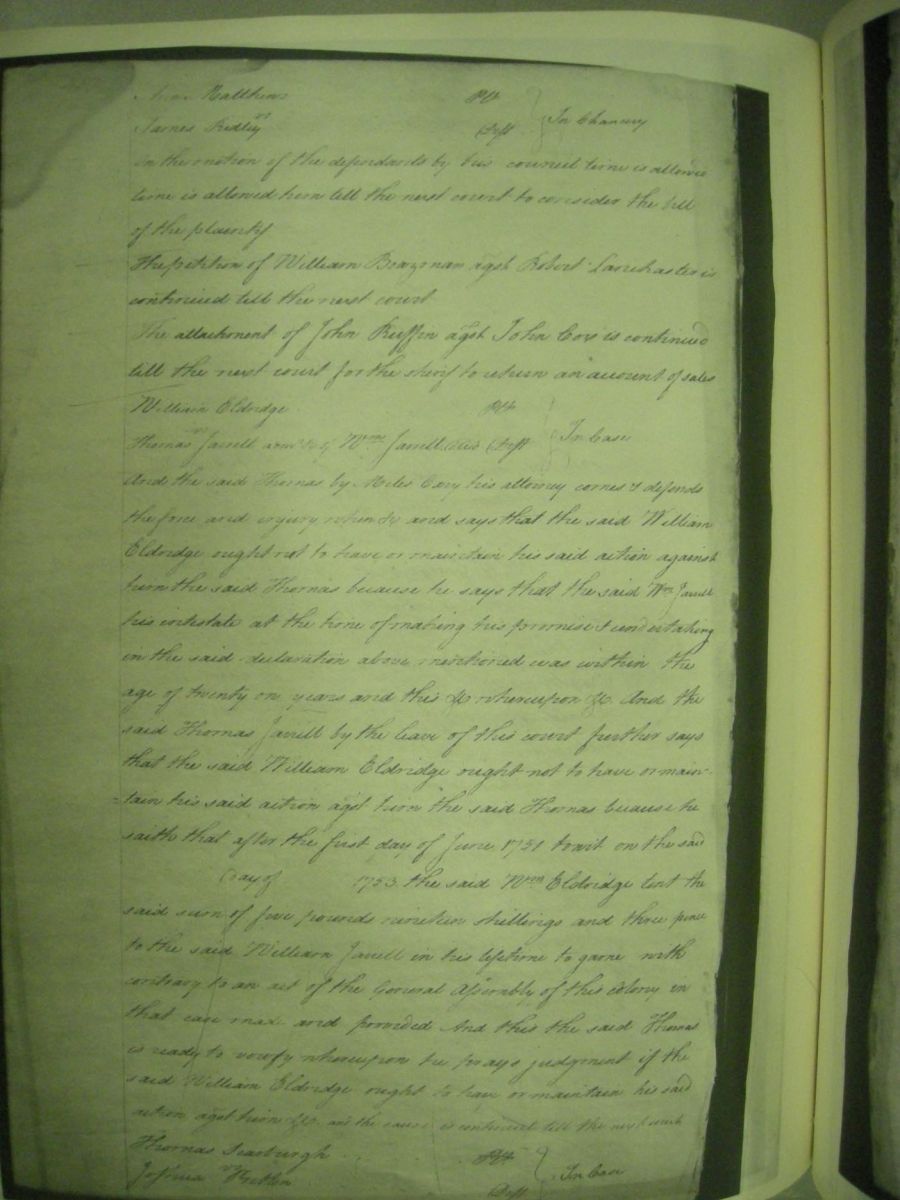 Matthews Plt
James Ridley Deft } In Chancery
on the motion of the defendants by his council time is allowed
time is allowed him till the next court to consider the bill
of the plaintif
The petition of William Bozman agst Robert Lanchaster is
continued till the next court
The attachment of John Ruffin agst John Cox is continued
till the next court for the sherif to return an account of sales
William Eldridge Plt
vs } In Case
Thomas Jarrell admr &c of Wm Jarrell decd Deft
And the said Thomas by Miles Cary his attorney comes & defends
the force and injury when &c and says that the said William
Eldridge ought not to have or maintain his said action against
him the said Thomas because he says that the said Wm Jarrell
his intestate at the time of making his promise & undertaking
in the said declaration above mentioned was within the
age of twenty on years and this &c whereupon &c And the
said Thomas Jarrell by the leave of this court further says
that the said William Eldridge ought not to have or main-
=tain his said action agst him the said Thomas because he
saith that after the first day of June 1751 towit on the said
Day of 1753 the said Wm Eldridge lent the
said sum of five pounds nineteen shillings and three pence
to the said William Jarrell in his lifetime to game with
contrary to an act of the General Assembly of this colony in
that case made and provided And this the said Thomas
is ready to verify whereupon he prays judgment if the
said William Eldridge ought to have or maintain his said
action agst him &c and the cause is continued till the next court
Thomas Scarburgh Plt
vs } In Case
Joshua Deft